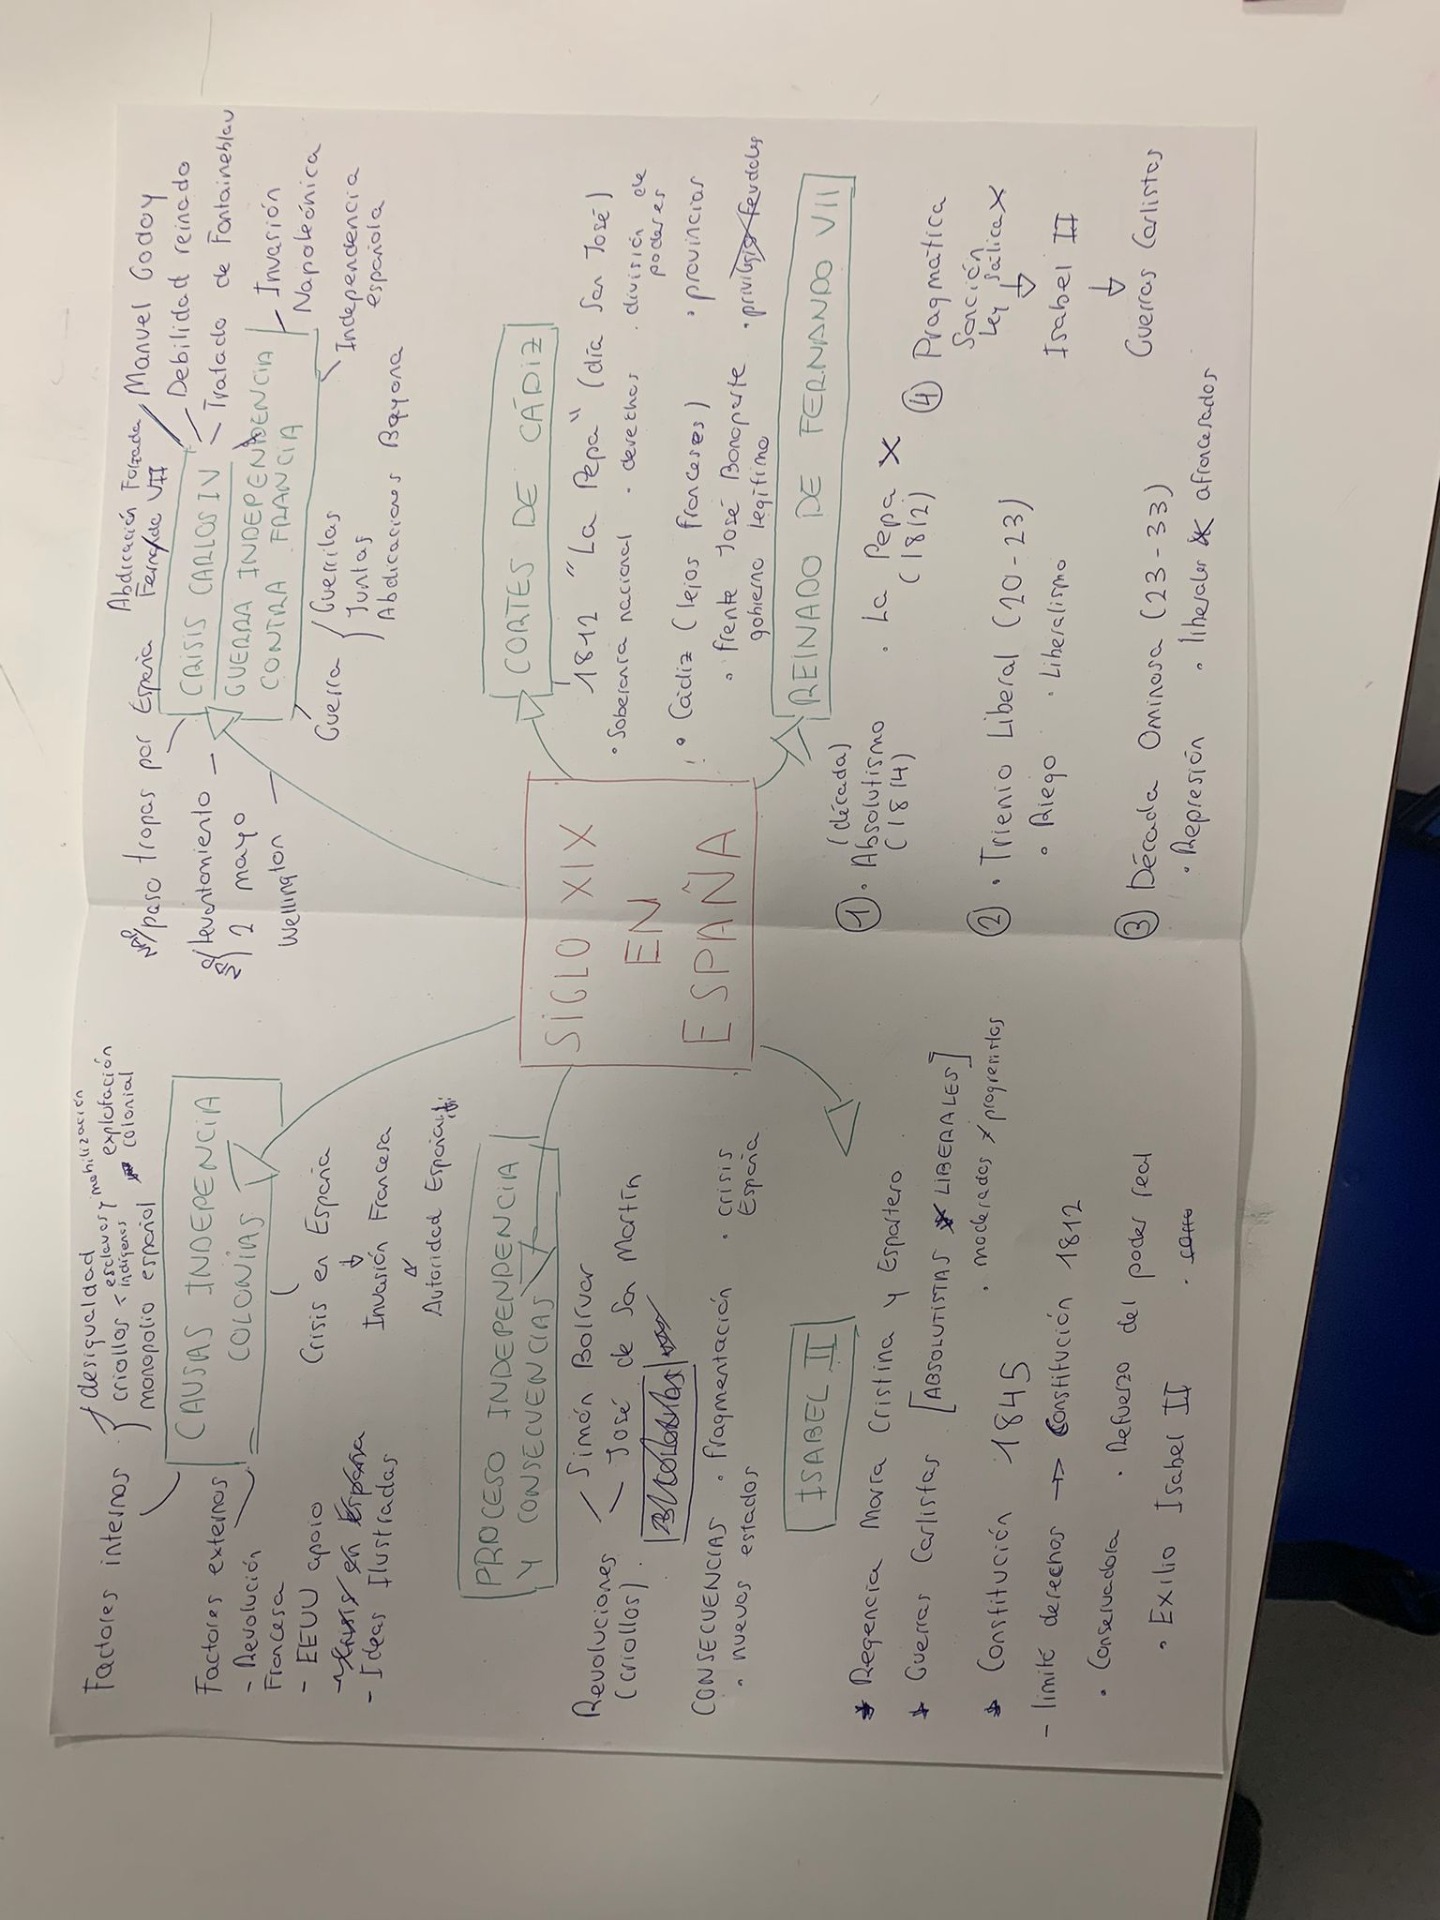 SIGLO XIX
EN
ESPAÑA
Factores internos
desigualdad
criollos < esclavos y movilización
indígenas explotación
monopolio español colonial
CAUSAS INDEPENCIA
COLONIAS
Factores externos
- Revolución
Francesa
- EEUU apoio
- Ideas Ilustradas
Crisis en España
↓
Invasión Francesa
Autoridad
PROCESO INDEPENDENCIA
Y CONSECUENCIAS
Revoluciones
(criollos).
Simón Bolívar
José de San Martín
CONSECUENCIAS . fragmentación . crisis
España
. nuevos estados
ISABEL II
* Regencia María Cristina y Espartero
* Guerras Carlistas [ABSOLUTISTAS LIBERALES]
* Constitución 1845 . moderados progresistas
- limite derechos → Constitución 1812
. Conservadora . Refuerzo del poder real
. Exilio Isabel II
paso tropas por España
Abdicación Forzada
VII
CRISIS CARLOS IV
GUERRA INDEPENDENCIA
CONTRA FRANCIA
Manuel Godoy
Debilidad reinado
Tratado de Fontainebleu
Invasión
Napoleónica
Independencia
española
levantamiento
2 mayo
Wellington
Guerra { Guerrilas
Juntas
Abdicaciones Bayona
CORTES DE CÁDIZ
1812 "La Pepa" (día San José)
. Soberanía nacional . derechos . división de
poderes
. Cádiz (lejos franceses) . provincias
. frente José Bonaparte
gobierno legítimo
. feudales
REINADO DE FERNANDO VII
① . (década)
Absolutismo . La Pepa X
(1814) (1812)
② . Trienio Liberal (20-23)
. Riego . Liberalismo
③ Década Ominosa (23-33)
. Represión . liberales afrancesados
④ Pragmática
Sanción
Ley SálicaX
↓
Isabel II
↓
Guerras Carlistas